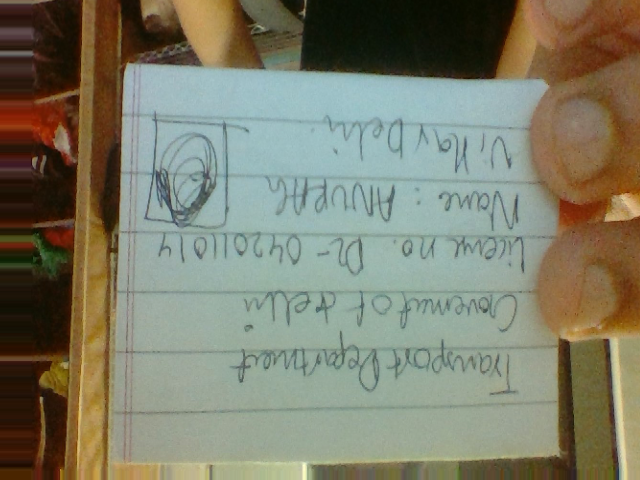 Transport Department
Government of delhi
License no. DL-042011014
Name : ANURAG
Villay Delhi.